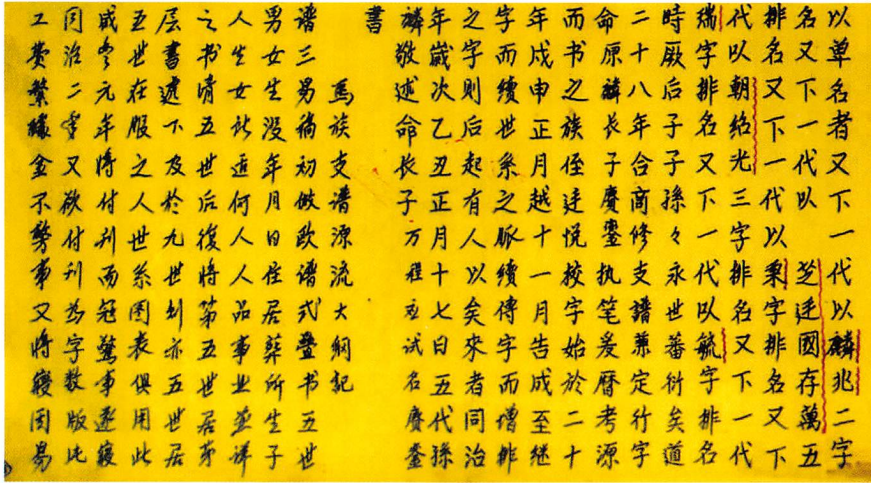 以单名者又下一代以麟兆二字
名又下一代以芝廷國存萬五
排名又下一代以秉字排名又下
代以朝紹光三字排名又下一代
瑞字排名又下一代以毓字排名
時厥后子子孫々永世蕃衍矣道
二十八年合商修支譜兼定行字
命原麟长子賡鑾执笔爰曆考源
而书之族侄廷悦校字始於二十
年戍申正月越十一月告成至继
字而續世系之脈續傳字而增排
之字則后起有人以矣來者同治
年歲次乙丑正月十七日五代孫
麟敬述命长子万程應试名賡鑾
書
馬族支谱源流大綱記
谱三易稿初倣欧谱式叠书五世
男女生没年月日住居葬所生子
人生女訃适何人人品事业並详
之书情五世后復将第五世居第
层書遞下及於九世别亦五世居
五世在服之人世系图表俱用此
咸豐元年将付刊而冠驚事遂寢
同治二年又欲付刊為字数版比
工費繁緣金不勢事又将寝因易